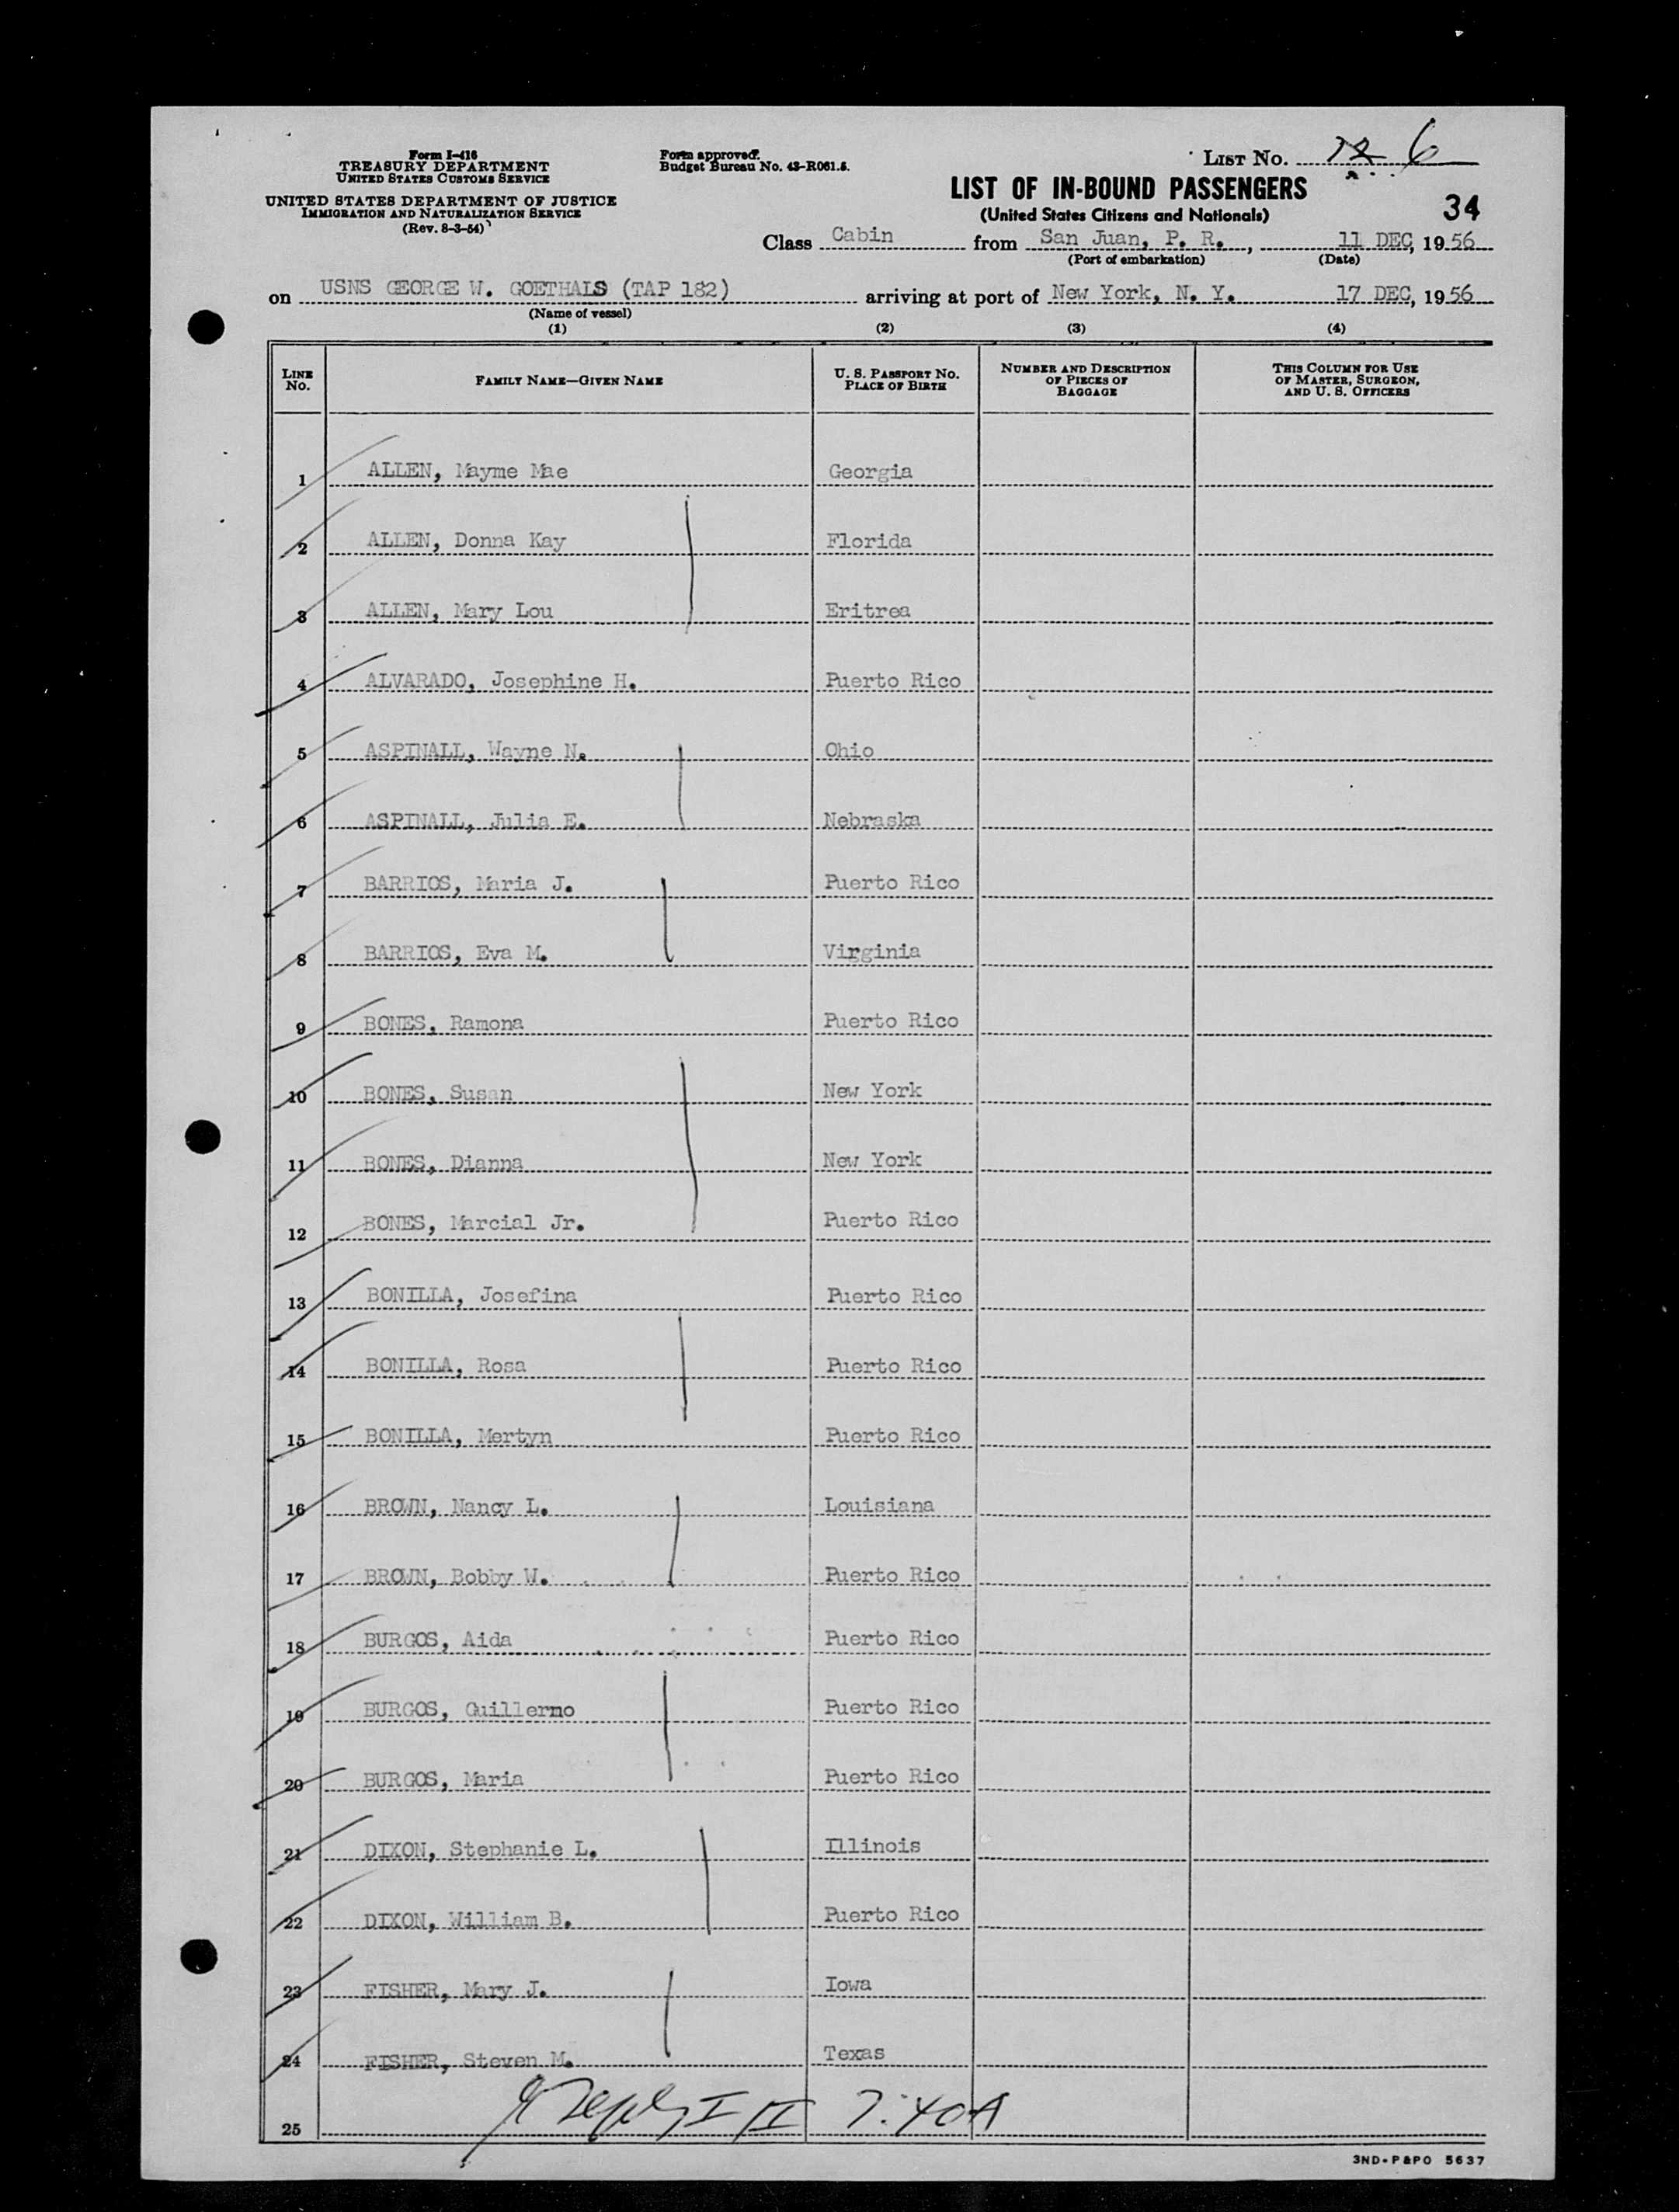 Form I-416
TREASURY DEPARTMENT
UNITED STATES CUSTOMS SERVICE
UNITED STATES DEPARTMENT OF JUSTICE
IMMIGRATION AND NATURALIZATION SERVICE
(Rev. 8-3-54)
Form approved.
Budget Bureau No. 43-R061.5.
LIST No. 12 6
LIST OF IN-BOUND PASSENGERS
(United States Citizens and Nationals)
34
Class Cabin from San Juan, P. R., 11 DEC, 1956
(Port of embarkation) (Date)
on USNS GEORGE W. GOETHALS (TAP 182) arriving at port of New York, N. Y. 17 DEC, 1956
(Name of vessel)
(1) (2) (3) (4)
LINE No. FAMILY NAME—GIVEN NAME U. S. PASSPORT No. PLACE OF BIRTH NUMBER AND DESCRIPTION OF PIECES OF BAGGAGE THIS COLUMN FOR USE OF MASTER, SURGEON, AND U. S. OFFICERS
1 ALLEN, Mayme Mae Georgia
2 ALLEN, Donna Kay Florida
3 ALLEN, Mary Lou Eritrea
4 ALVARADO, Josephine H. Puerto Rico
5 ASPINALL, Wayne N. Ohio
6 ASPINALL, Julia E. Nebraska
7 BARRIOS, Maria J. Puerto Rico
8 BARRIOS, Eva M. Virginia
9 BONES, Ramona Puerto Rico
10 BONES, Susan New York
11 BONES, Dianna New York
12 BONES, Marcial Jr. Puerto Rico
13 BONILLA, Josefina Puerto Rico
14 BONILLA, Rosa Puerto Rico
15 BONILLA, Mertyn Puerto Rico
16 BROWN, Nancy L. Louisiana
17 BROWN, Bobby W. Puerto Rico
18 BURGOS, Aida Puerto Rico
19 BURGOS, Guillermo Puerto Rico
20 BURGOS, Maria Puerto Rico
21 DIXON, Stephanie L. Illinois
22 DIXON, William B. Puerto Rico
23 FISHER, Mary J. Iowa
24 FISHER, Steven M. Texas
25 7:40A
3ND-P&PO 5637